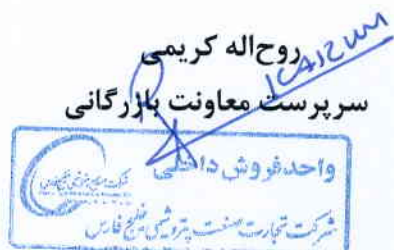 روح‌اله کریمی
سرپرست معاونت بازرگانی
واحد فروش داخلی
شرکت تجارت صنعت پتروشی خلیج فارس